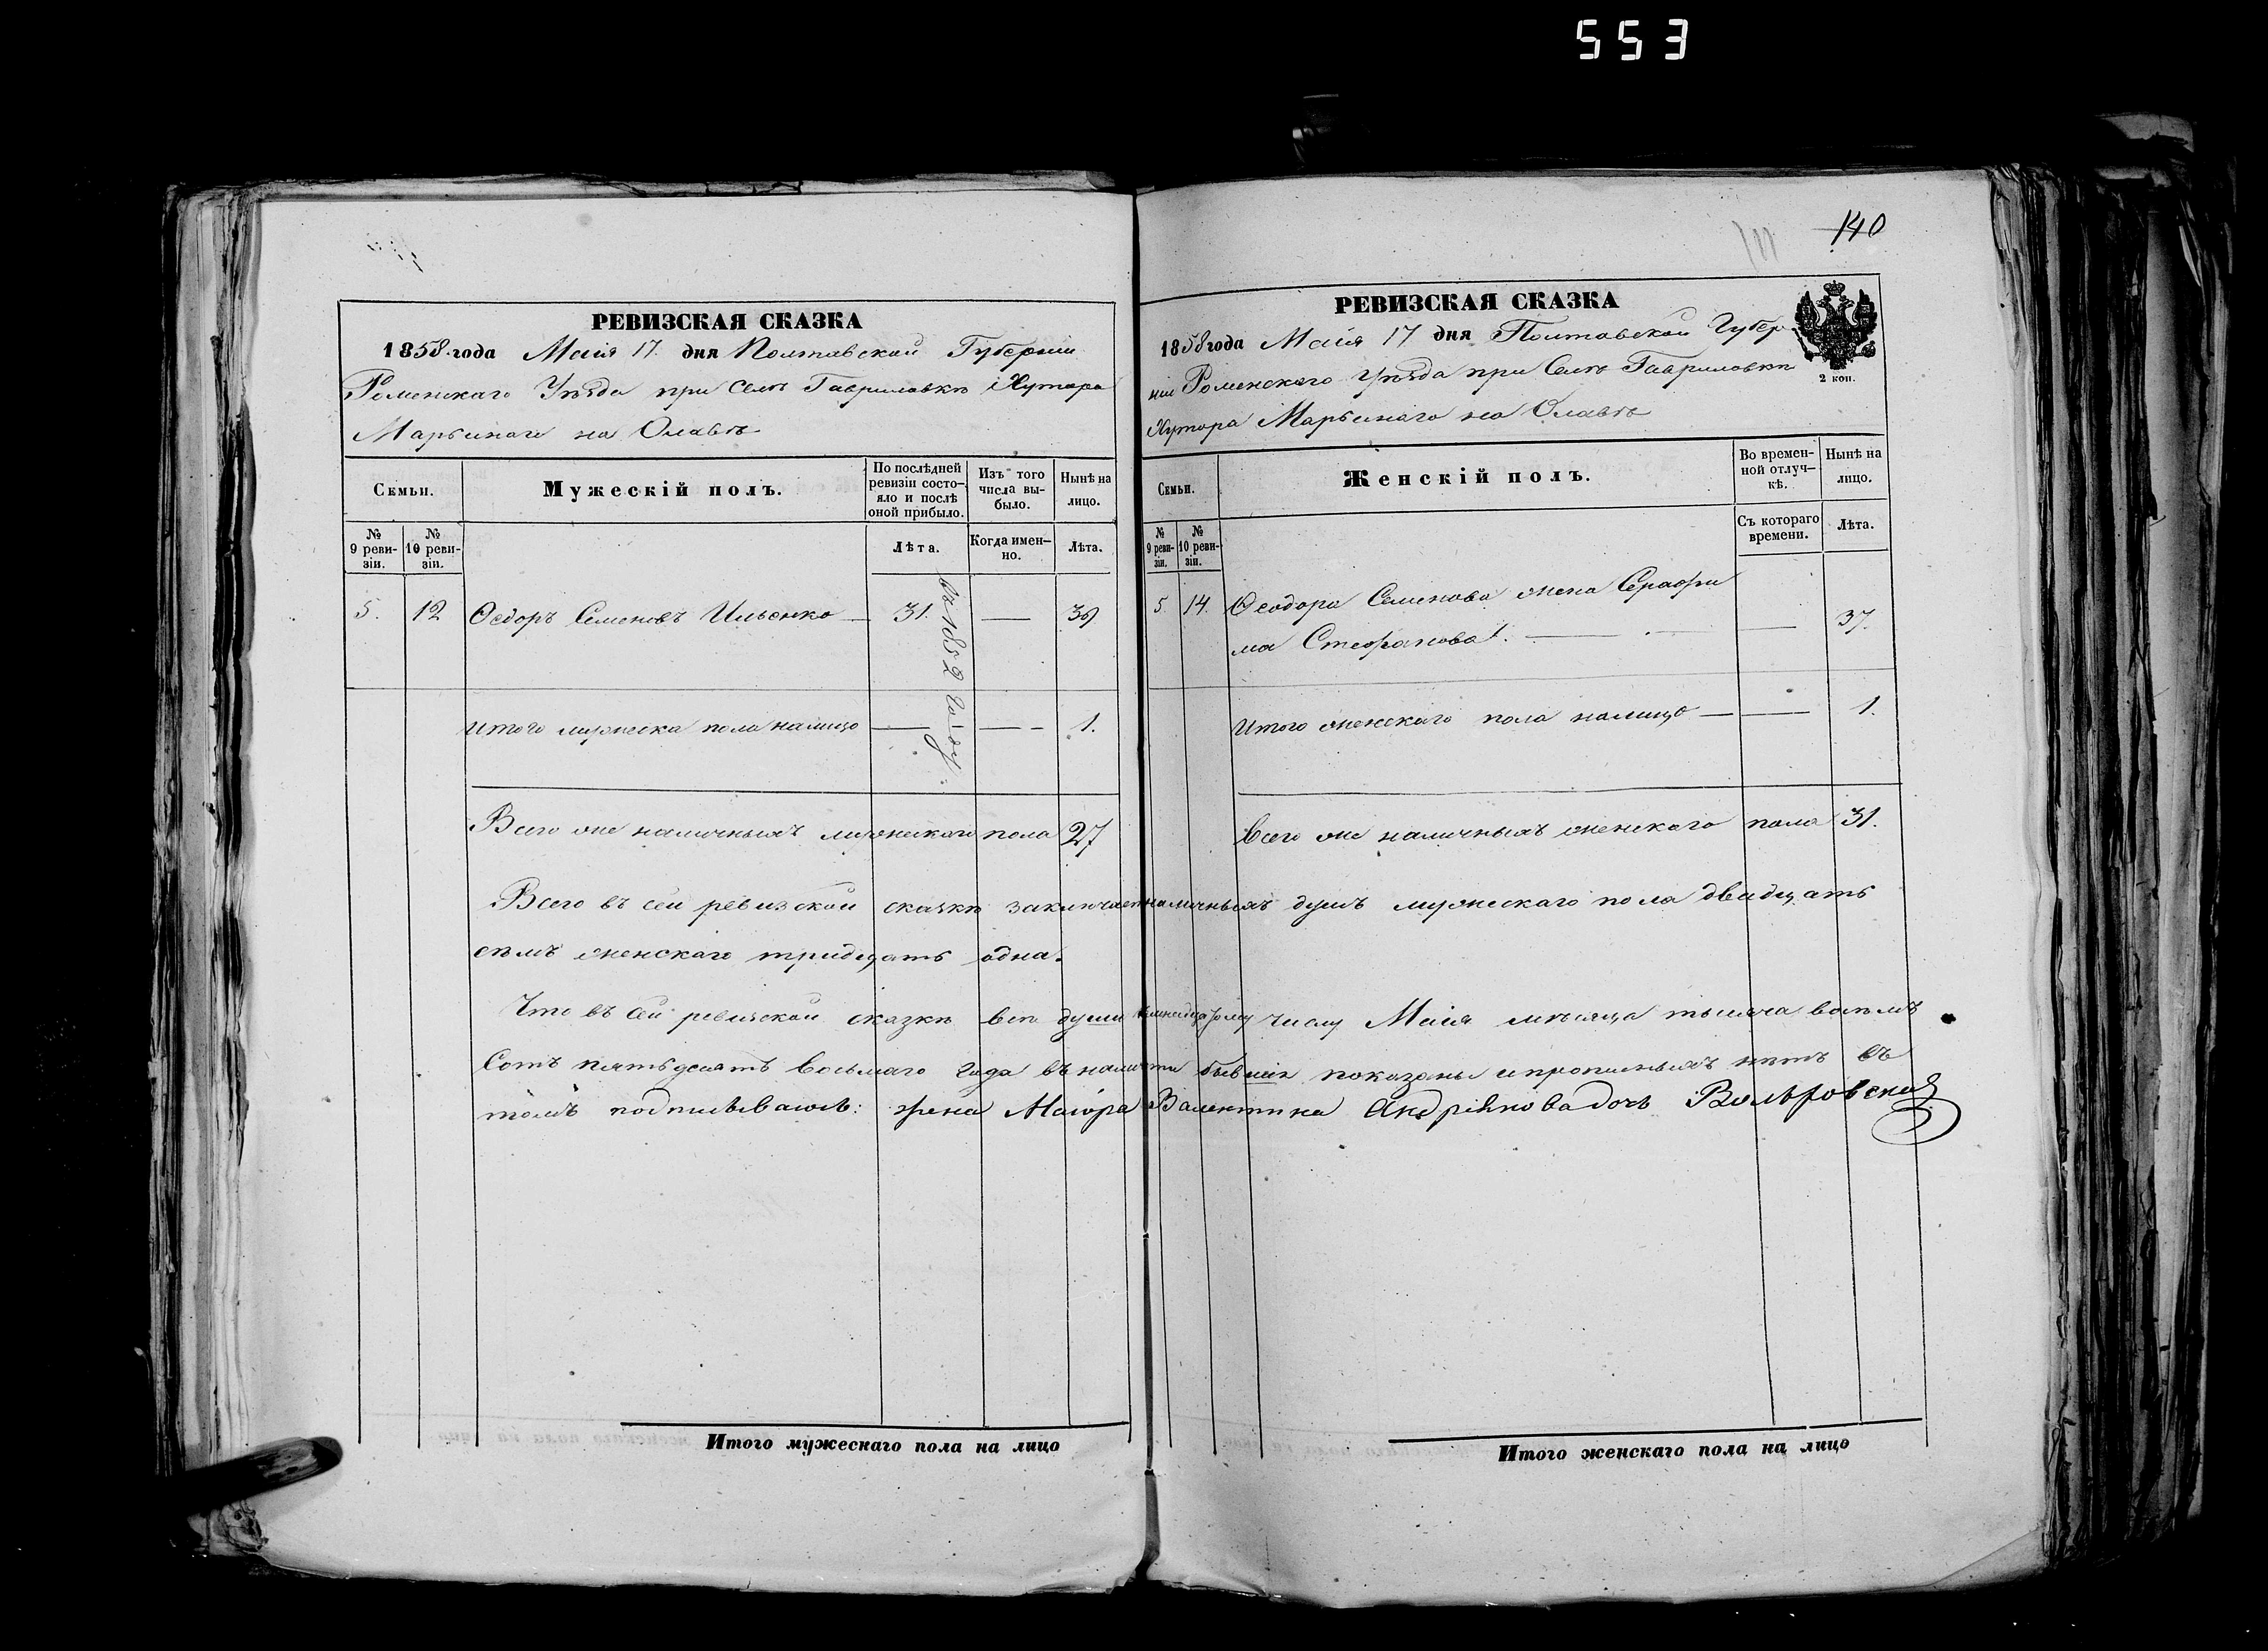 553
РЕВИЗСКАЯ СКАЗКА
1858 года Маія 17. дня Полтавской Губерніи
Роменскаго Уѣзда при Селѣ Гавриловкѣ Хутора
Марьинаго на Олавѣ
Семьи.
Мужескій полъ.
По послѣдней ревизіи состояло и послѣ оной прибыло.
Изъ того числа выбыло.
Нынѣ на лицо.
№ 9 ревизіи.
№ 10 ревизіи.
Лѣта.
Когда именно.
Лѣта.
5. 12 Ѳедоръ Семеновъ Ильенко — 31. — 39
въ 1852 году.
Итого мужеска пола налицо — — 1.
Всего же наличныхъ мужескаго пола 27
140
РЕВИЗСКАЯ СКАЗКА
1858 года Маія 17 дня Полтавской Губер-
ніи Роменскаго Уѣзда при Селѣ Гавриловкѣ
Хутора Марьинаго на Олавѣ
2 коп.
Семьи.
Женскій полъ.
Во временной отлучкѣ.
Нынѣ на лицо.
№ 9 ревизіи.
№ 10 ревизіи.
Съ котораго времени.
Лѣта.
5. 14. Ѳеодора Семенова жена Серафи
ма Стефанова — — 37.
Итого женскаго пола налицо — — 1.
Всего же наличныхъ женскаго пола 31.
Всего въ сей ревизской сказкѣ заключает наличныхъ душъ мужескаго пола двадцать
сѣмъ женскаго тридцать одна.
Что въ сей ревизской сказкѣ всѣ души числу Маія мѣсяца тысяча восѣмъ
Сотъ пятьдесятъ восьмаго года въ наличти бывшіе показаны и прописныхъ нѣтъ въ
томъ подписываюсь: жена Маіора Валентина Андріянова дочь
Итого мужескаго пола на лицо
Итого женскаго пола на лицо